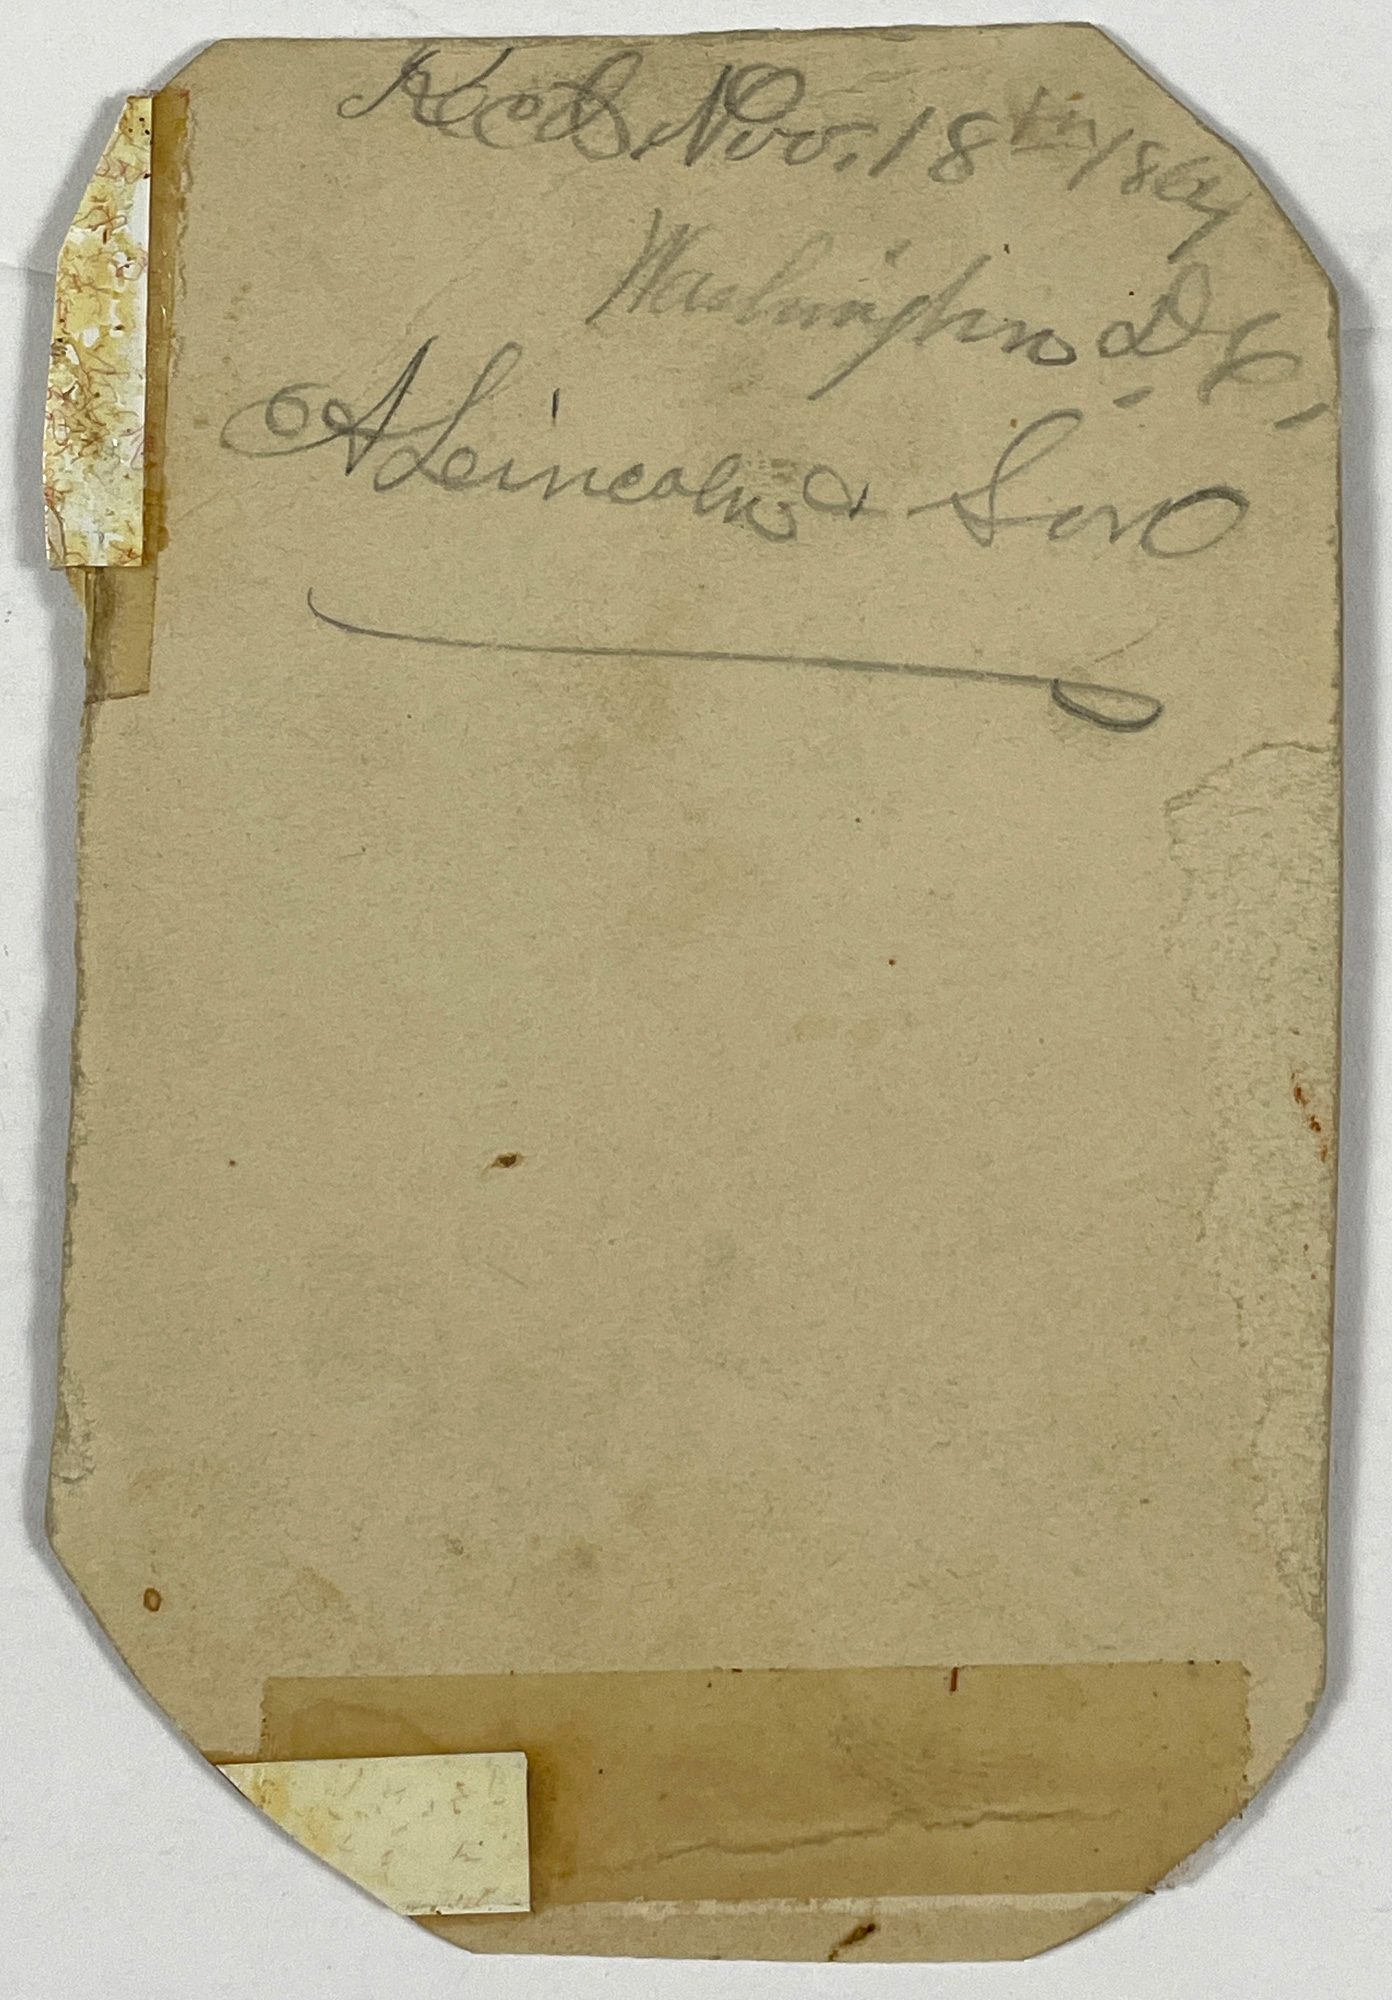 Recd Nov. 18th 1864
Washington D.C.
A Leincoln & Son